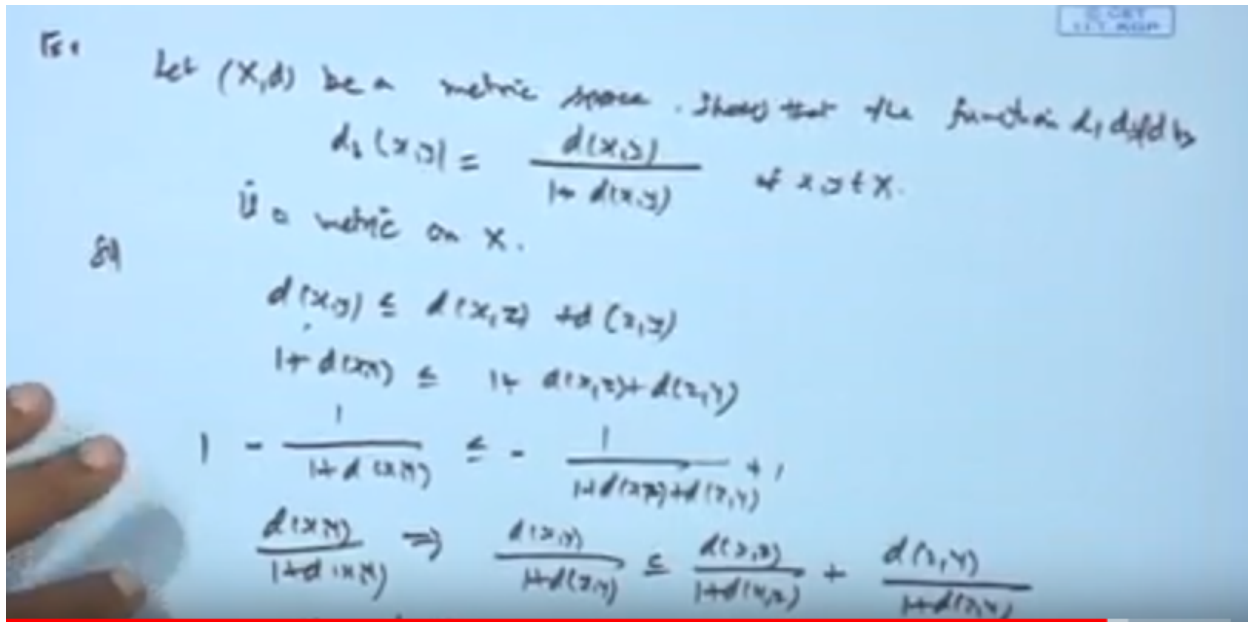 Let (X,d) be a metric space. Show that the function d₁ by
d₁(x,y) = d(x,y) / 1+d(x,y) if x,y ∈ X.
is a metric on X.
d(x,y) ≤ d(x,z) + d(z,y)
1+d(x,y) ≤ 1+ d(x,z)+d(z,y)
1 - 1 / 1+d(x,y) ≤ - 1 / 1+d(x,z)+d(z,y) + 1
d(x,y) / 1+d(x,y) ⇒ d(x,y) / 1+d(x,y) ≤ d(x,z) / 1+d(x,z) + d(z,y) / 1+d(z,y)